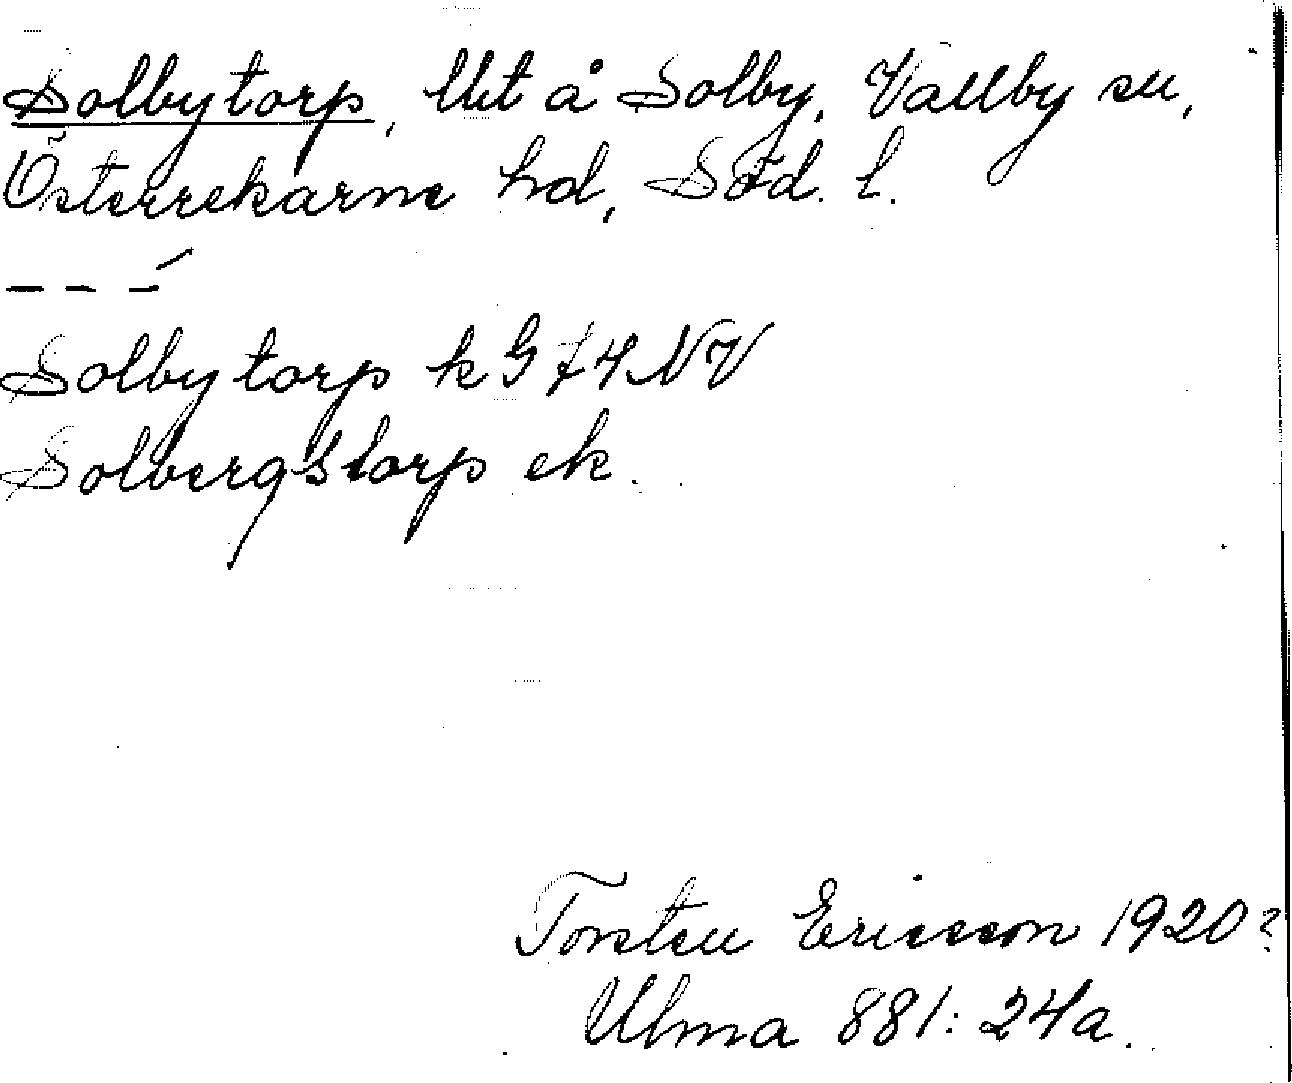 Solbytorp, lht å Solby, Vallby sn,
Österrekarne hd, Söd. l.
– – –́
Solbytorp k G 74 NV
Solbergstorp ek.
Torsten Ericsson 1920?
Ulma 881:24a.